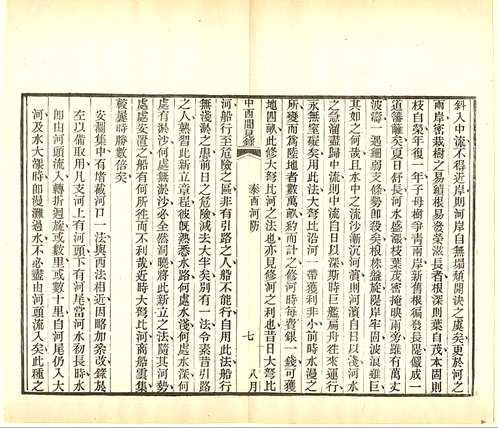 斜入中流不得近岸則河岸自無塌頽開決之虞矣更於河之
兩岸密栽樹之易蕃根易發榮滋長者根深則葉自茂本固則
枝自榮年復一年子母樹爭青兩岸新舊根徧發長隄儼成一
道藩籬矣夏日舒長河水盛漲枝葉茂密掩映兩旁雖有萬丈
波濤一遇細弱支條勢即殺矣根株盤旋隄岸牢固波浪雖巨
其如之何哉且水中之流沙漸沉河濱則河濱自日以淺河水
之急溜盡歸中流則中流自日以深斯時巨艦扁舟往來運行
永無窒礙矣用此法大弩比河一帶獲利非小前時水漫之
所變而爲陸地者數萬畝約而計之修河時每費銀一錢可獲
地四畝此修大弩比河之法也亦見修河之利也昔日大弩比
中西聞見錄
泰西河防
七
八月
河船行至危險之區非有引路之人船不能行自用此法船行
無淺淤之患前日之危險減去大半矣別有一法令素昔引路
之人熟習此新立章程彼既熟悉水路何處水淺何處水深何
處有淤沙何處無淤沙必全然洞曉將此新立之法隨其河勢
處處安置之船有何所往而不利哉近時大弩比河商船雲集
較曩時勝數倍矣
安瀾集中有堵截河口一法與西法相近因略加添改錄於
左以備取用凡支河上有河頭下有河尾當河水初長時水
即由河頭流入轉折迴旋或數里或數十里自河尾仍入大
河及水大漲時即漫灘過水不必盡由河頭流入矣此種之